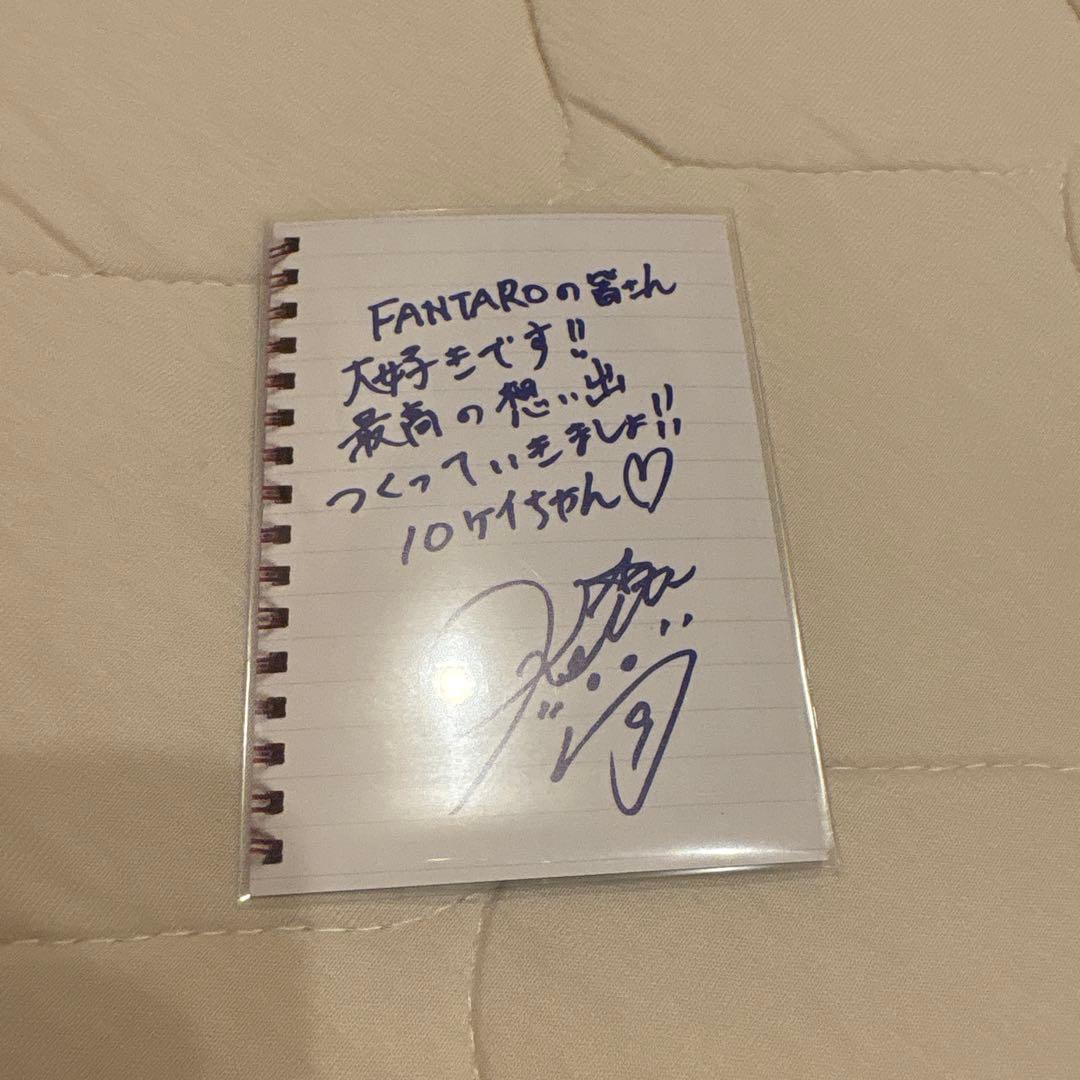 FANTAROの皆さん
大好きです!!
最高の想い出
つくっていきましょ!!
10ケイちゃん♡